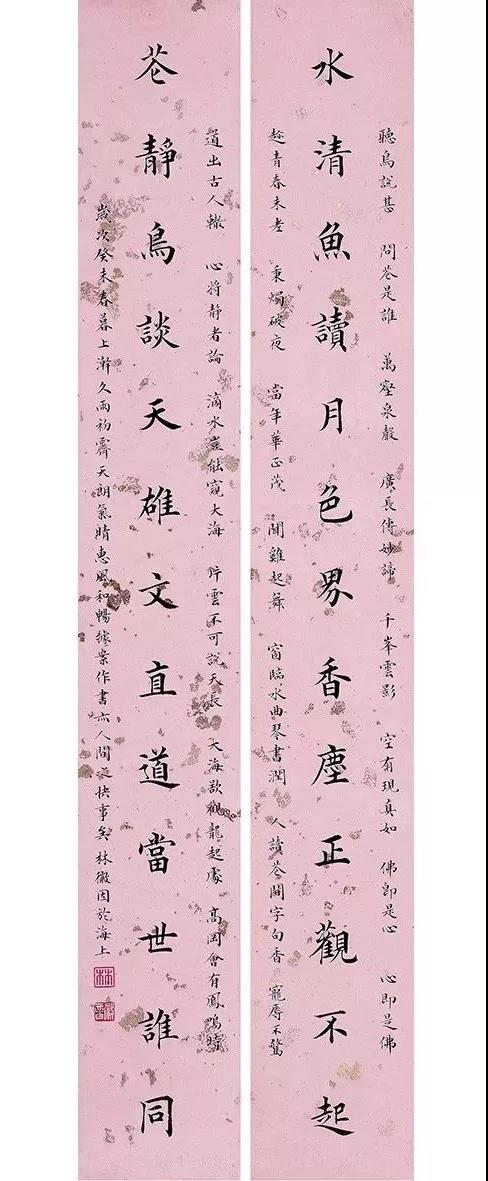 聽鳥說甚　問花是誰　萬壑泉聲　廣長傳妙諦　千峯雲影　空有現真如　佛即是心　心即是佛
水清魚讀月色界香塵正觀不起
趁青春未老　秉燭破夜　當年華正茂　聞雞起舞　窗臨水曲琴書潤　人讀花間字句香　寵辱不驚
道出古人轍　心將静者論　滴水豈能窺大海　片雲不可說天長　大海欲觀龍起處　高岡會有鳳鳴時
花靜鳥談天雄文直道當世誰同
歲次癸未春暮上澣久雨初霽天朗氣晴惠風和暢據案作書亦人間一快事矣林徽因於海上
林